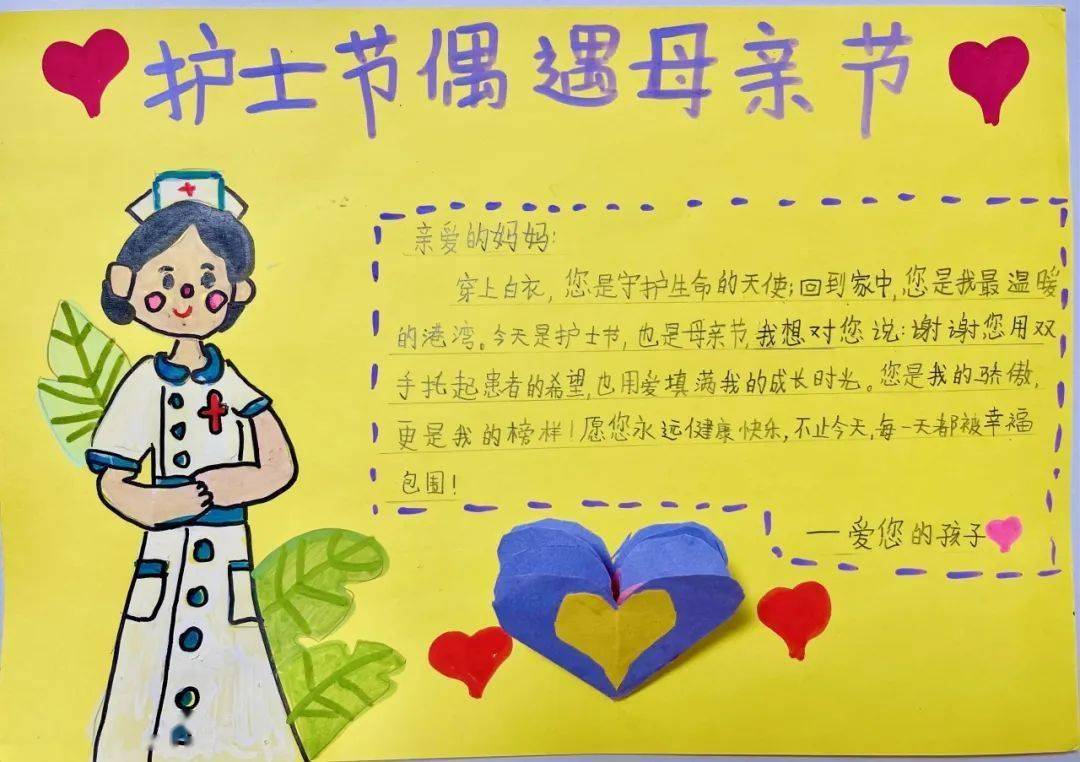 护士节偶遇母亲节
亲爱的妈妈:
穿上白衣,您是守护生命的天使;回到家中,您是我最温暖
的港湾。今天是护士节,也是母亲节,我想对您说:谢谢您用双
手托起患者的希望,也用爱填满我的成长时光。您是我的骄傲,
更是我的榜样!愿您永远健康快乐,不止今天,每一天都被幸福
包围!
—爱您的孩子